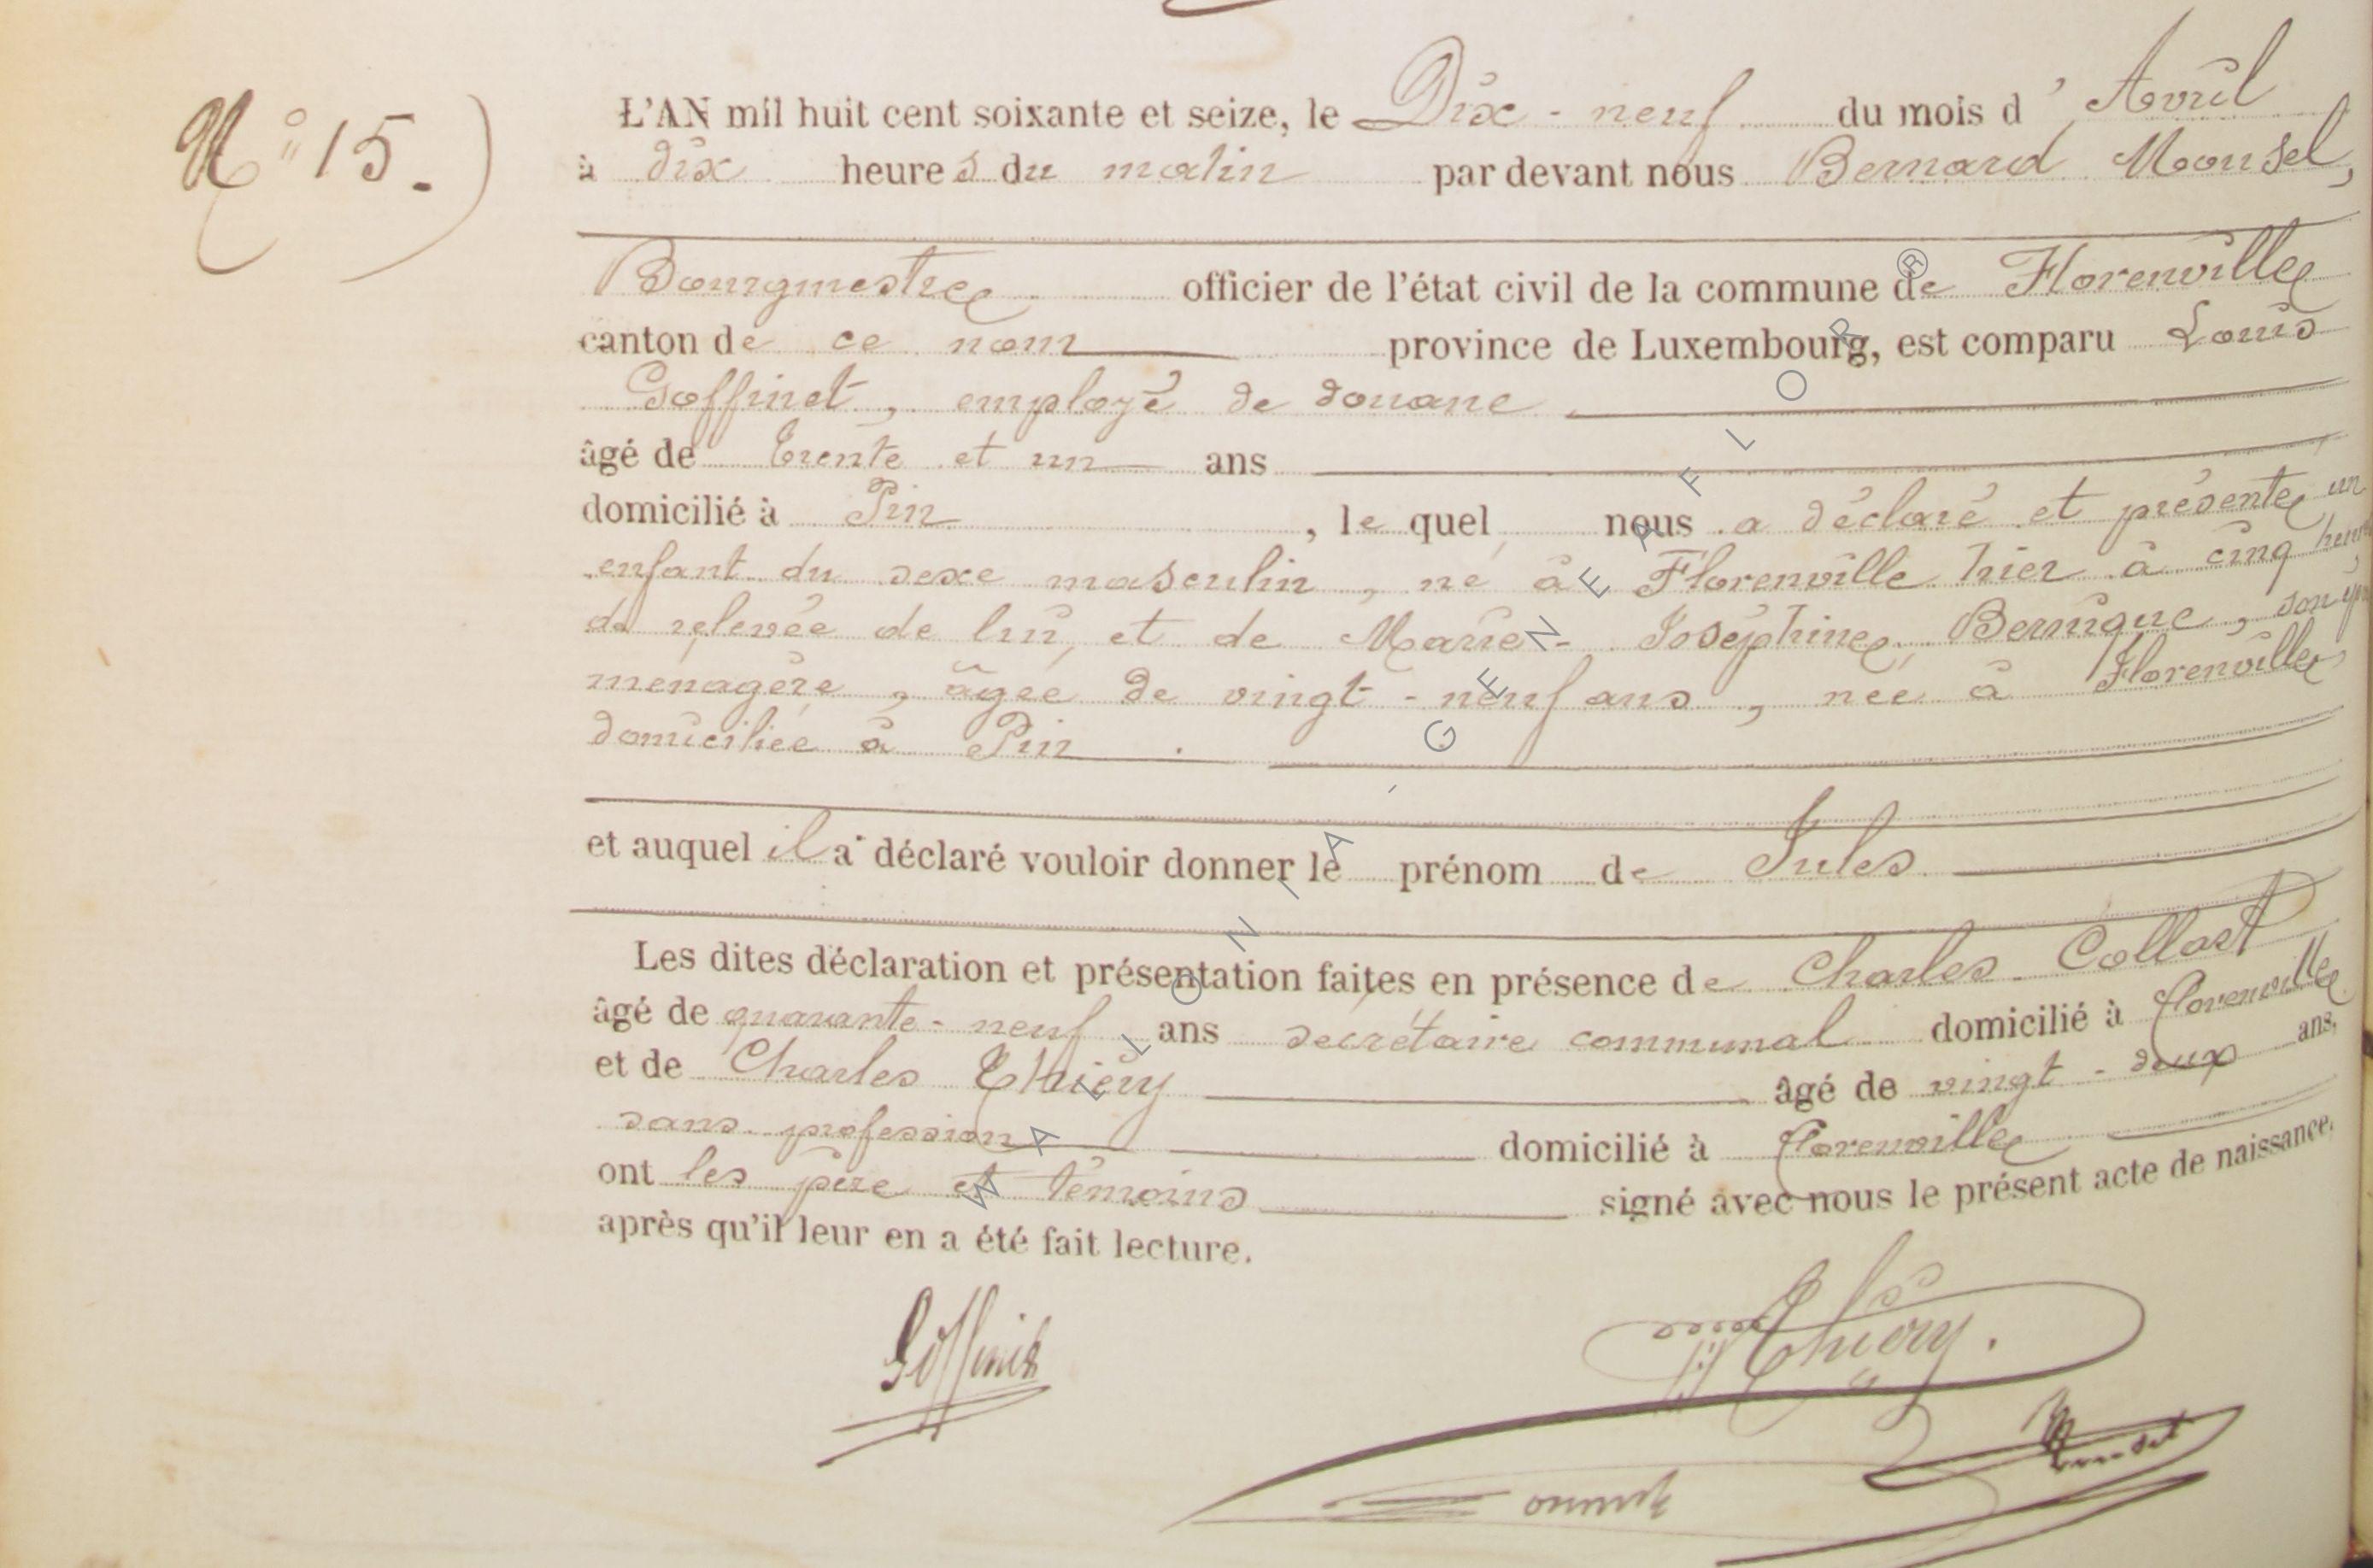 N° 15.)
L'AN mil huit cent soixante et seize, le Dix-neuf du mois d'Avril
à dix heures du matin par devant nous Bernard Mousel,
Bourgmestre officier de l'état civil de la commune de Florenville
canton de ce nom province de Luxembourg, est comparu Louis
Goffinet, employé de douane
âgé de trente et un ans
domicilié à Pin, lequel nous a déclaré et présenté un
enfant du sexe masculin, né à Florenville hier à cinq
de relevée de lui, et de Marie-Joséphine, son
ménagère, âgée de vingt-neuf ans, née à Florenville
domiciliée à Pin.
et auquel il a déclaré vouloir donner le prénom de Jules
Les dites déclaration et présentation faites en présence de Charles Collart
âgé de quarante-neuf ans secrétaire communal domicilié à Florenville
et de Charles Thiéry âgé de vingt-deux ans,
sans profession domicilié à Florenville
ont les père et témoins signé avec nous le présent acte de naissance,
après qu'il leur en a été fait lecture.
Goffinet
Thiéry.
WALLONIA - GENEAFLOR®